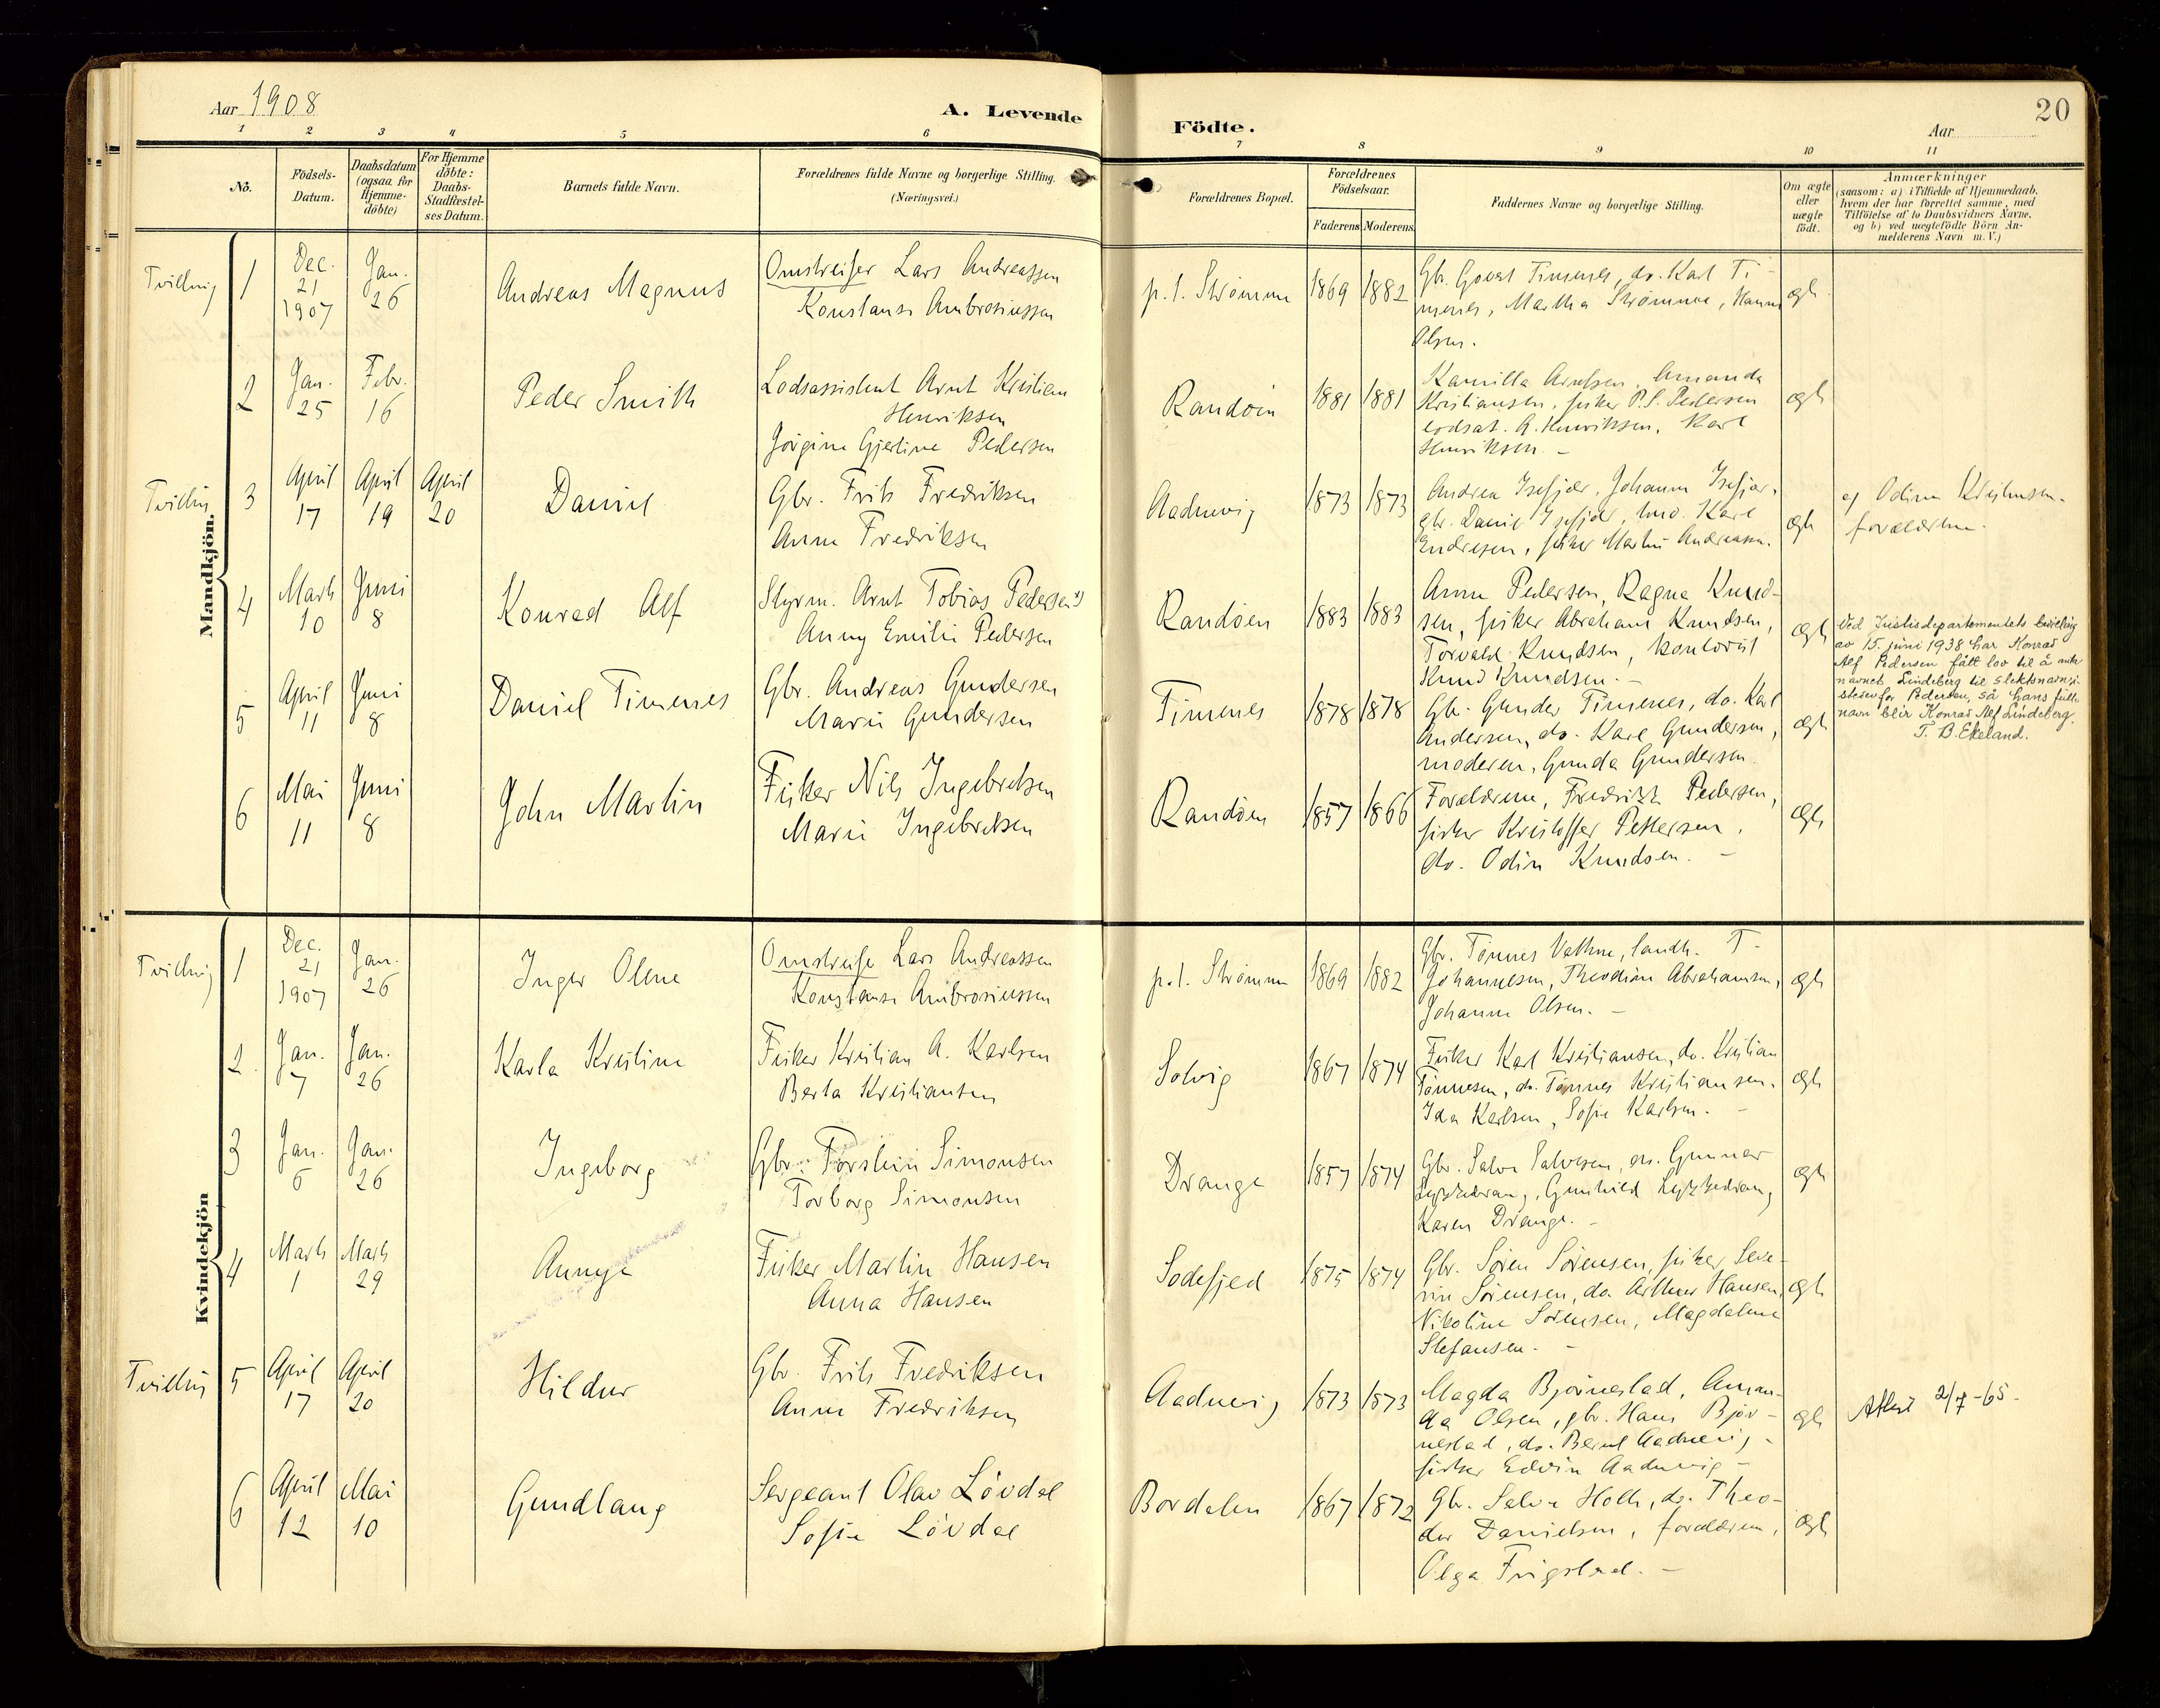 Aar 1908
A. Levende
Födte.
Aar
20
1 2 3 4 5 6 7 8 9 10 11
No.
Födsels-
Datum.
Daabsdatum
(ogsaa for
Hjemme-
döbte)
For Hjemme
döbte:
Daabs-
Stadfæstel-
ses Datum.
Barnets fulde Navn.
Forældrenes fulde Navne og borgerlige Stilling.
(Næringsvei.)
Forældrenes Bopæl.
Forældrenes
Födselsaar.
Faderens
Moderens
Faddernes Navne og borgerlige Stilling.
Om ægte
eller
uægte
födt.
Anmærkninger
(saasom: a) i Tilfælde af Hjemmedaab,
hvem der har forrettet samme, med
Tilföielse af to Daabsvidners Navne,
og b) ved uægtefödte Börn An-
melderens Navn m. V.)
Mandkjön.
Tvilling
1
Dec.
21
1907
Jan.
26
Andreas Magnus
Omstreifer Lars Andreassen
Konstanse Ambrosiussen
p.t. Strømme
1869
1882
Gbr. Govert Timenes, do. Karl Ti-
menes, Martha Strømme, Hanna
Olsen.
ægte
2
Jan.
25
Febr.
16
Peder Smith
Lodsassistent Arnt Kristian
Henriksen
Jörgine Gjertine Pedersen
Randöen
1881
1881
Kamilla Arntsen, Amanda
Kristiansen, fisker P.S. Pedersen
lodsas. A. Henriksen, Karl
Henriksen. -
ægte
Tvilling
3
April
17
April
19
April
20
Daniel
Gbr. Frits Fredriksen
Anne Fredriksen
Aadnevig
1873
1873
Andrea Isefjær, Johanne Isefjær,
gbr. Daniel Isefjær, Karl
Endresen, fisker Martin Andreasen.
ægte
forældrene.
4
Marts
10
Juni
8
Konrad Alf
Styrm. Arnt Tobias Pedersen
Anny Emilie Pedersen
Randöen
1883
1883
Anne Pedersen, Ragna Knud-
sen, fisker Abraham Knudsen,
Torvald Knudsen, kontorist
Knud Knudsen. -
ægte
Ved Justisdepartementets bevilling
av 15. juni 1938 har Konrad
Alf Pedersen fått lov til å anta
navnet Lindeberg til slektsnavn i-
stedenfor Pedersen, så hans fulle
navn blir Konrad Alf Lindeberg.
T. B. Ekeland.
5
April
11
Juni
8
Daniel Timenes
Gbr. Andreas Gundersen
Marie Gundersen
Timenes
1878
1878
Gbr. Gunder Timenes, do. Karl
Andersen, do. Karl Gundersen,
moderen, Gunda Gundersen.
ægte
6
Mai
11
Juni
8
John Martin
Fisker Nils Ingebretsen
Marie Ingebretsen
Randöen
1857
1866
Forældrene, Fredrikke Pedersen,
fisker Kristoffer Pettersen,
do. Odin Knudsen. -
ægte
Kvindekjön
Tvilling
1
Dec.
21
1907
Jan.
26
Inger Olene
Omstreifer Lars Andreassen
Konstanse Ambrosiussen
p.t. Strömme
1869
1882
Gbr. Tönnes Vathne, landh. T.
Johannesen, Theodine Abrahamsen,
Johanne Olsen. -
ægte
2
Jan.
7
Jan.
26
Karla Kristine
Fisker Kristian A. Karlsen
Berta Kristiansen
Solvig
1867
1874
Fisker Karl Kristiansen, do. Kristian
Tönnesen, do. Tönnes Kristiansen,
Ida Karlsen, Sofie Karlsen. -
ægte
3
Jan.
6
Jan.
26
Ingeborg
Gbr. Torstein Simonsen
Torborg Simonsen
Drange
1857
1874
Gbr. Salve Salvesen, do. Gunnar
Lykkedrang, Gunhild Lykkedrang,
Karen Drange. -
ægte
4
Marts
1
Marts
29
Annye
Fisker Martin Hansen
Anna Hansen
Sodefjed
1875
1874
Gbr. Sören Sörensen, fisker Seve-
rin Sörensen, do. Arthur Hansen,
Nikoline Sörensen, Magdalene
Stefansen. -
ægte
Tvilling
5
April
17
April
20
Hildur
Gbr. Frits Fredriksen
Anne Fredriksen
Aadnevig
1873
1873
Magda Bjørnestad, Aman-
da Olsen, gbr. Hans Bjør-
nestad, do. Bernt Aadnevig,
fisker Edvin Aadnevig -
ægte
Attest 2/7-65.
6
April
12
Mai
10
Gundlaug
Sergeant Olav Lövdal
Sofie Lövdal
Bordalen
1867
1872
Gbr. Salve Holte, do. Theo-
dor Danielsen, forældrene,
Olga Frigstad. -
ægte